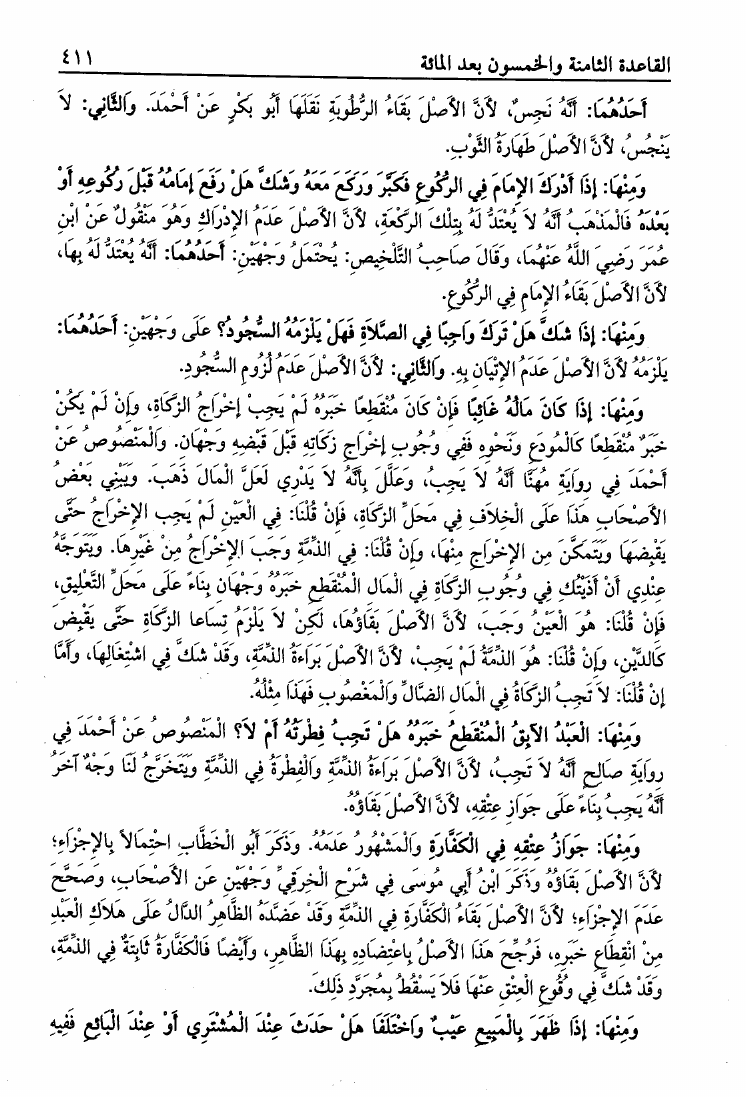 القاعدة الثامنة والخمسون بعد المائة ٤١١
أَحَدُهُمَا: أَنَّهُ نَجِسٌ، لأَنَّ الأَصْلَ بَقَاءُ الرُّطُوبَةِ نَقَلَهَا أَبُو بَكْرٍ عَنْ أَحْمَدَ. وَالثَّانِي: لاَ
يَنْجُسُ، لأَنَّ الأَصْلَ طَهَارَةُ الثَّوْبِ.
وَمِنْهَا: إِذَا أَدْرَكَ الإِمَامَ فِي الرُّكُوعِ فَكَبَّرَ وَرَكَعَ مَعَهُ وَشَكَّ هَلْ رَفَعَ إِمَامُهُ قَبْلَ رُكُوعِهِ أَوْ
بَعْدَهُ فَالْمَذْهَبُ أَنَّهُ لاَ يُعْتَدُّ لَهُ بِتِلْكَ الرَّكْعَةِ، لأَنَّ الأَصْلَ عَدَمُ الإِدْرَاكِ وَهُوَ مَنْقُولٌ عَنْ ابْنِ
عُمَرَ رَضِيَ اللَّهُ عَنْهُمَا، وَقَالَ صَاحِبُ التَّلْخِيصِ: يُحْتَمَلُ وَجْهَيْنِ: أَحَدُهُمَا: أَنَّهُ يُعْتَدُّ لَهُ بِهَا،
لأَنَّ الأَصْلَ بَقَاءُ الإِمَامِ فِي الرُّكُوعِ.
وَمِنْهَا: إِذَا شَكَّ هَلْ تَرَكَ وَاجِبًا فِي الصَّلاَةِ فَهَلْ يَلْزَمُهُ السُّجُودُ؟ عَلَى وَجْهَيْنِ: أَحَدُهُمَا:
يَلْزَمُهُ لأَنَّ الأَصْلَ عَدَمُ الإِتْيَانِ بِهِ. وَالثَّانِي: لأَنَّ الأَصْلَ عَدَمُ لُزُومِ السُّجُودِ.
وَمِنْهَا: إِذَا كَانَ مَالُهُ غَائِبًا فَإِنْ كَانَ مُنْقَطِعًا خَبَرُهُ لَمْ يَجِبْ إِخْرَاجُ الزَّكَاةِ، وَإِنْ لَمْ يَكُنْ
خَبَرُ مُنْقَطِعًا كَالْمُودَعِ وَنَحْوِهِ فَفِي وُجُوبِ إِخْرَاجِ زَكَاتِهِ قَبْلَ قَبْضِهِ وَجْهَانِ. وَالْمَنْصُوصُ عَنْ
أَحْمَدَ فِي رِوَايَةِ مُهَنَّا أَنَّهُ لاَ يَجِبُ، وَعَلَّلَ بِأَنَّهُ لاَ يَدْرِي لَعَلَّ الْمَالَ ذَهَبَ. وَيَبْنِي بَعْضُ
الأَصْحَابِ هَذَا عَلَى الْخِلاَفِ فِي مَحَلِّ الزَّكَاةِ، فَإِنْ قُلْنَا: فِي الْعَيْنِ لَمْ يَجِبِ الإِخْرَاجُ حَتَّى
يَقْبِضَهَا وَيَتَمَكَّنَ مِنِ الإِخْرَاجِ مِنْهَا، وَإِنْ قُلْنَا: فِي الذِّمَّةِ وَجَبَ الإِخْرَاجُ مِنْ غَيْرِهَا. وَيَتَوَجَّهُ
عِنْدِي أَنْ أَدَّيْتُكِ فِي وُجُوبِ الزَّكَاةِ فِي الْمَالِ الْمُنْقَطِعِ خَبَرُهُ وَجْهَانِ بِنَاءً عَلَى مَحَلِّ التَّعْلِيقِ،
فَإِنْ قُلْنَا: هُوَ الْعَيْنُ وَجَبَ، لأَنَّ الأَصْلَ بَقَاؤُهَا، لَكِنْ لاَ يَلْزَمُ تِسَاعا الزَّكَاةِ حَتَّى يَقْبِضَ
كَالدَّيْنِ، وَإِنْ قُلْنَا: هُوَ الذِّمَّةُ لَمْ يَجِبْ، لأَنَّ الأَصْلَ بَرَاءَةُ الذِّمَّةِ، وَقَدْ شَكَّ فِي اشْتِغَالِهَا، وَأَمَّا
إِنْ قُلْنَا: لاَ تَجِبُ الزَّكَاةُ فِي الْمَالِ الضَّالِّ وَالْمَغْصُوبِ فَهَذَا مِثْلُهُ.
وَمِنْهَا: الْعَبْدُ الآبِقُ الْمُنْقَطِعُ خَبَرُهُ هَلْ تَجِبُ فِطْرَتُهُ أَمْ لاَ؟ الْمَنْصُوصُ عَنْ أَحْمَدَ فِي
رِوَايَةِ صَالِحٍ أَنَّهُ لاَ تَجِبُ، لأَنَّ الأَصْلَ بَرَاءَةُ الذِّمَّةِ وَالْفِطْرَةُ فِي الذِّمَّةِ وَيَتَخَرَّجُ لَنَا وَجْهٌ آخَرُ
أَنَّهُ يَجِبُ بِنَاءً عَلَى جَوَازِ عِتْقِهِ، لأَنَّ الأَصْلَ بَقَاؤُهُ.
وَمِنْهَا: جَوَازُ عِتْقِهِ فِي الْكَفَّارَةِ وَالْمَشْهُورُ عَدَمُهُ. وَذَكَرَ أَبُو الْخَطَّابِ احْتِمَالاً بِالإِجْزَاءِ؛
لأَنَّ الأَصْلَ بَقَاؤُهُ وَذَكَرَ ابْنُ أَبِي مُوسَى فِي شَرْحِ الْخِرَقِيِّ وَجْهَيْنِ عَنِ الأَصْحَابِ، وَصَحَّحَ
عَدَمَ الإِجْزَاءِ؛ لأَنَّ الأَصْلَ بَقَاءُ الْكَفَّارَةِ فِي الذِّمَّةِ وَقَدْ عَضَدَهُ الظَّاهِرُ الدَّالُّ عَلَى هَلاَكِ الْعَبْدِ
مِنْ انْقِطَاعِ خَبَرِهِ، فَرُجِّحَ هَذَا الأَصْلُ بِاعْتِضَادِهِ بِهَذَا الظَّاهِرِ، وَأَيْضًا فَالْكَفَّارَةُ ثَابِتَةٌ فِي الذِّمَّةِ،
وَقَدْ شَكَّ فِي وُقُوعِ الْعِتْقِ عَنْهَا فَلاَ يَسْقُطُ بِمُجَرَّدِ ذَلِكَ.
وَمِنْهَا: إِذَا ظَهَرَ بِالْمَبِيعِ عَيْبٌ وَاخْتَلَفَا هَلْ حَدَثَ عِنْدَ الْمُشْتَرِي أَوْ عِنْدَ الْبَائِعِ فَفِيهِ